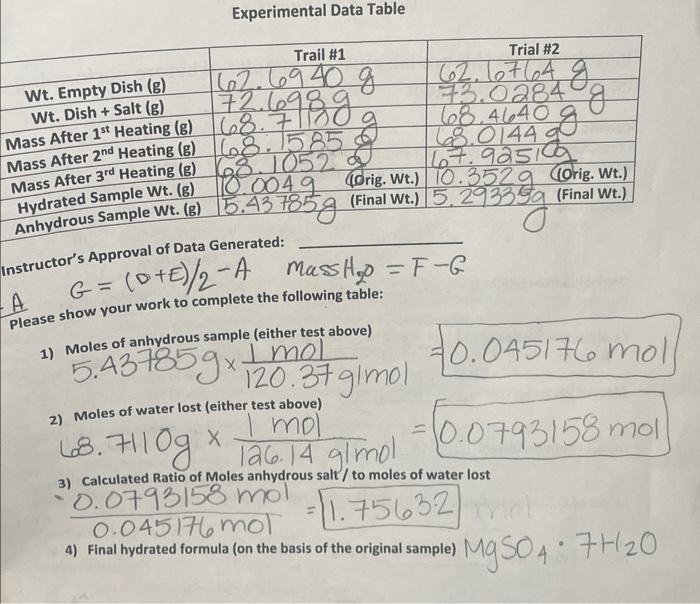 Experimental Data Table
Trail #1 Trial #2
Wt. Empty Dish (g) 62.6940 g 62.6764 g
Wt. Dish + Salt (g) 72.6989 g 73.0284 g
Mass After 1st Heating (g) 68.7110 g 68.4640 g
Mass After 2nd Heating (g) 68.1585 g 68.0144 g
Mass After 3rd Heating (g) 68.1052 g 67.9251 g
Hydrated Sample Wt. (g) 10.0049 (Orig. Wt.) 10.3529 (Orig. Wt.)
Anhydrous Sample Wt. (g) 5.43785g (Final Wt.) 5.29335g (Final Wt.)
Instructor's Approval of Data Generated:
-A G = (D+E)/2 - A Mass H2O = F - G
Please show your work to complete the following table:
1) Moles of anhydrous sample (either test above)
5.43785g × 1 mol / 120.37 g/mol = 0.045176 mol
2) Moles of water lost (either test above)
68.7110g × 1 mol / 126.14 g/mol = 0.0793158 mol
3) Calculated Ratio of Moles anhydrous salt / to moles of water lost
0.0793158 mol / 0.045176 mol = 1.75632
4) Final hydrated formula (on the basis of the original sample) MgSO4 · 7H2O